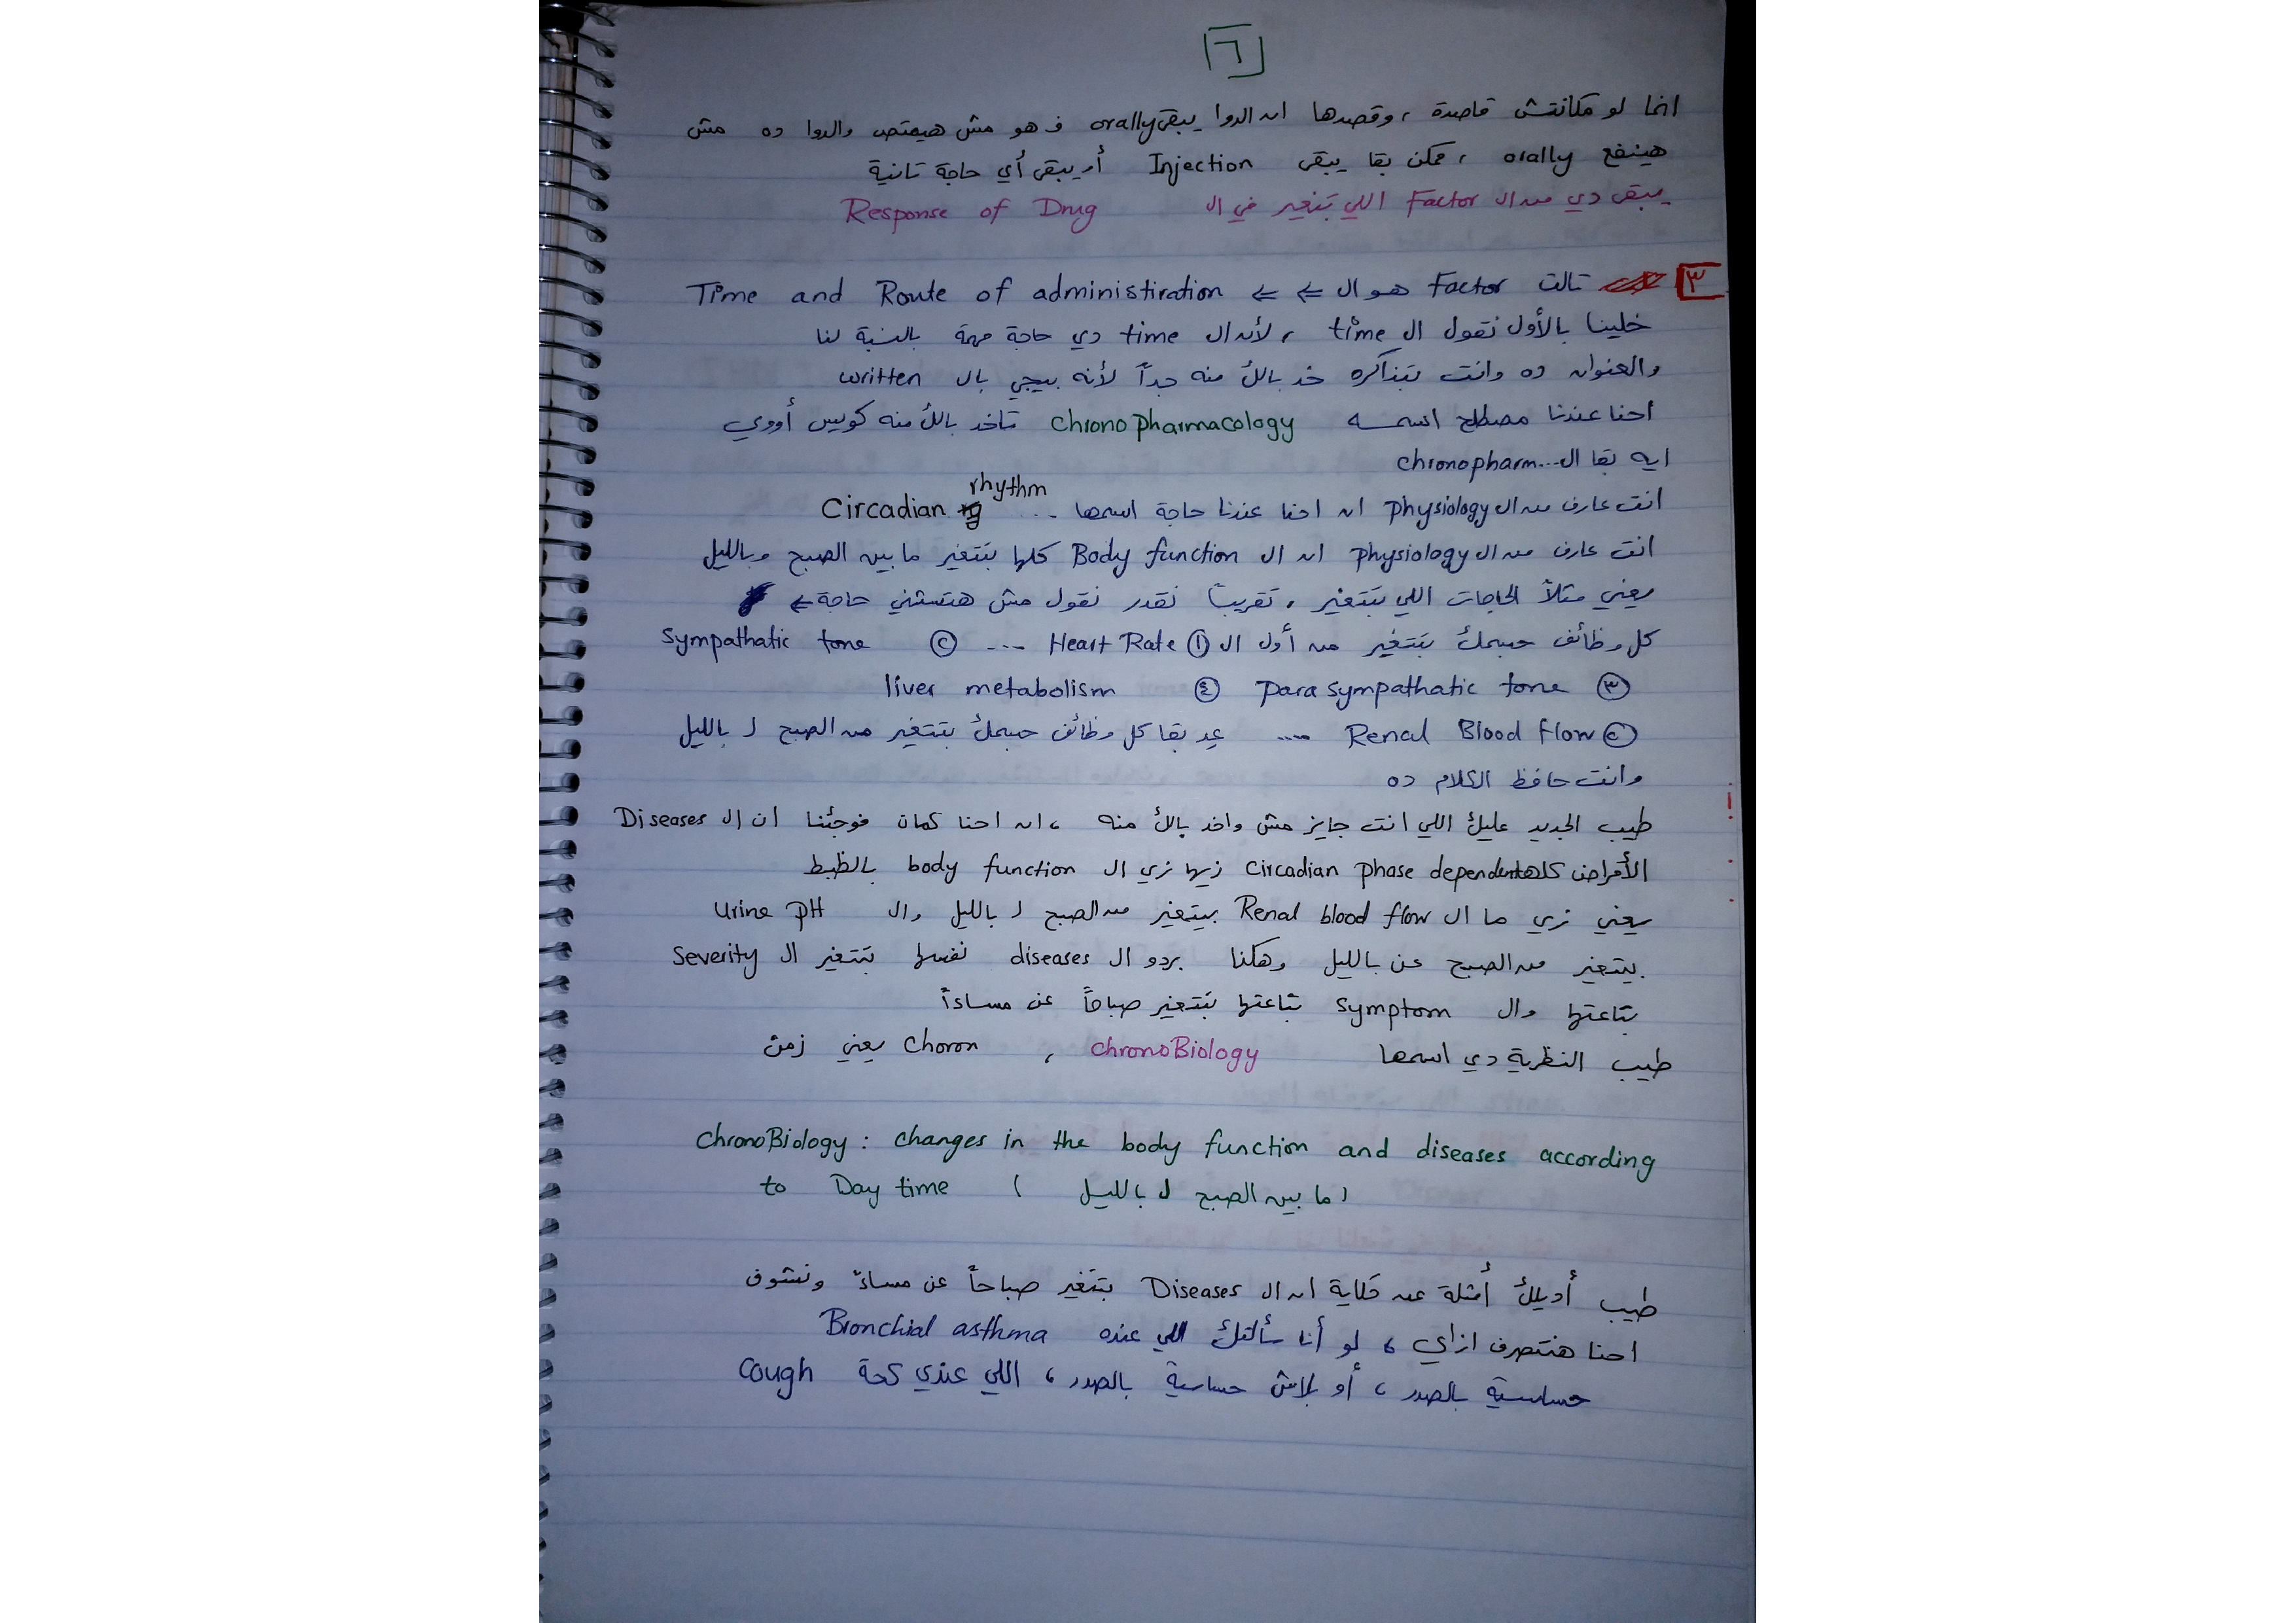 ٦
انما لو مكانتش قاصدة ، وقصدها ان الدوا يبقى orally ف هو مش هيمتص والدوا ده مش
هينفع orally ، ممكن بقا يبقى Injection أو يبقى أي حاجة تانية
يبقى دي من ال Factor اللي بتغير في ال Response of Drug
٣ تالت Factor هو ال ⇐ ⇐ Time and Route of administiration
خلينا بالأول نقول ال time ، لأن ال time دي حاجة مهمة بالنسبة لنا
والعنوان ده وانت بتذاكره خد بالك منه جداً لأنه بييجي بال written
احنا عندنا مصطلح اسمه Chronopharmacology تاخد بالك منه كويس أووي
ايه بقا ال...chronopharm
انت عارف من ال physiology ان احنا عندنا حاجة اسمها ... Circadian rhythm
انت عارف من ال physiology ان ال Body function كلها بتتغير ما بين الصبح وبالليل
يعني مثلاً الحاجات اللي بتتغير ، تقريباً نقدر نقول مش هنستثني حاجة ⇐
كل وظائف جسمك بتتغير من أول ال ① Heart Rate ... ② Sympathatic tone
③ para sympathatic tone ④ liver metabolism
② Renal Blood flow .... عِد بقا كل وظائف جسمك بتتغير من الصبح ل بالليل
وانت حافظ الكلام ده
طيب الجديد عليك اللي انت جايز مش واخد بالك منه ، ان احنا كمان فوجئنا ان ال Diseases
الأمراض كلها Circadian phase dependent زيها زي ال body function بالظبط
يعني زي ما ال Renal blood flow بيتغير من الصبح ل بالليل وال Urine pH
بيتغير من الصبح عن بالليل وهكذا بردو ال diseases نفسها بتتغير ال Severity
بتاعتها وال Symptom بتاعتها بتتغير صباحاً عن مساءاً
طيب النظرية دي اسمها chronoBiology ، Choron يعني زمن
ChronoBiology : changes in the body function and diseases according
to Day time ( ما بين الصبح ل بالليل )
طيب أديلك أمثلة عن حكاية ان ال Diseases بتتغير صباحاً عن مساءً ونشوف
احنا هنتصرف ازاي ، لو أنا سألتك اللي عنده Bronchial asthma
حساسية بالصدر ، أو بلاش حساسية بالصدر ، اللي عندي كحة Cough